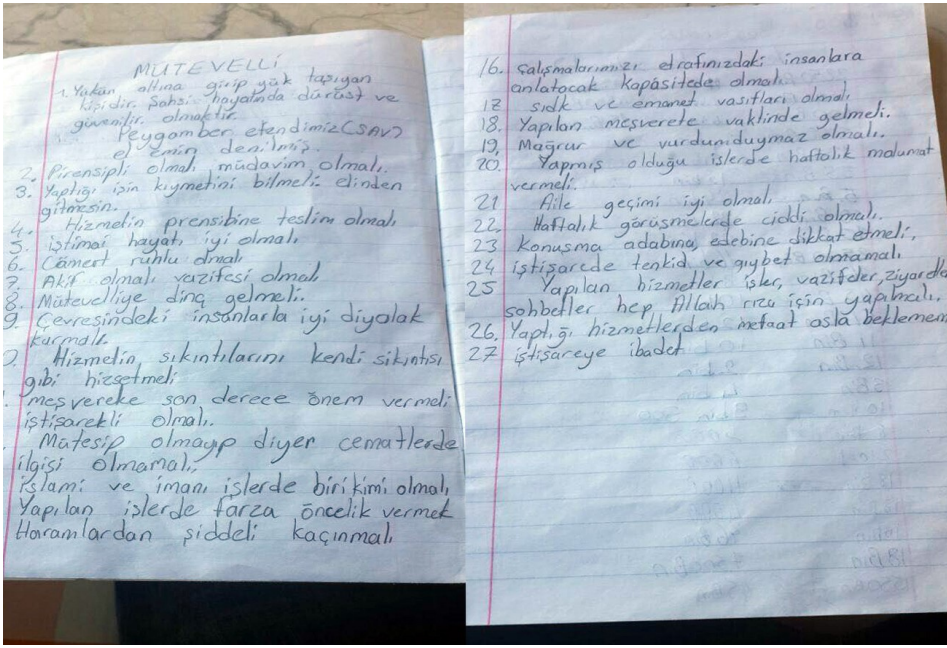 MÜTEVELLİ
1. Yükün altına girip yük taşıyan
kişidir. Şahsi hayatında dürüst ve
güvenilir olmaktır.
Peygamber efendimiz (SAV)
el emin denilmiş.
2. Pirensipli olmalı, müdavim olmalı.
3. Yaptığı işin kıymetini bilmeli elinden
gitmesin.
4. Hizmetin prensibine teslim olmalı
5. iştimai hayatı iyi olmalı
6. Cömert ruhlu olmalı
7. Akif olmalı vazifesi olmalı
8. Mütevelliye dinç gelmeli.
9. Çevresindeki insanlarla iyi diyalok
kurmalı.
0. Hizmetin sıkıntılarını kendi sıkıntısı
gibi hizsetmeli
meşvereke son derece önem vermeli
iştişarekli olmalı.
Mütesip olmayıp diyer cematlerde
ilgisi olmamalı,
islami ve imanı işlerde birikimi olmalı,
Yapılan işlerde farza öncelik vermek
Haramlardan şiddeli kaçınmalı
16. Çalışmalarımızı etrafınızdaki insanlara
anlatacak kapasitede olmalı.
17 sıdk ve emanet vasıtları olmalı
18. Yapılan meşverete vaktinde gelmeli.
19. Mağrur ve vurdumduymaz olmalı.
20. Yapmış olduğu işlerde haftalık malumat
vermeli.
21 Aile geçimi iyi olmalı
22. Haftalık görüşmelerde ciddi olmalı.
23 Konuşma adabına, edebine dikkat etmeli,
24 iştişarede tenkid ve gıybet olmamalı
25 Yapılan hizmetler işler, vazifeler, ziyaretle
sohbetler hep Allah rızı için yapılmalı.
26. Yaptığı hizmetlerden mefaat asla beklemem
27 iştişareye ibadet